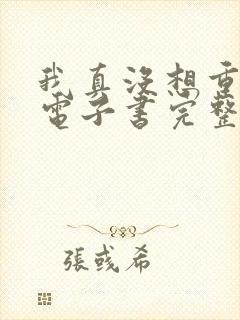 我真沒想重
電子書完整
張彧希